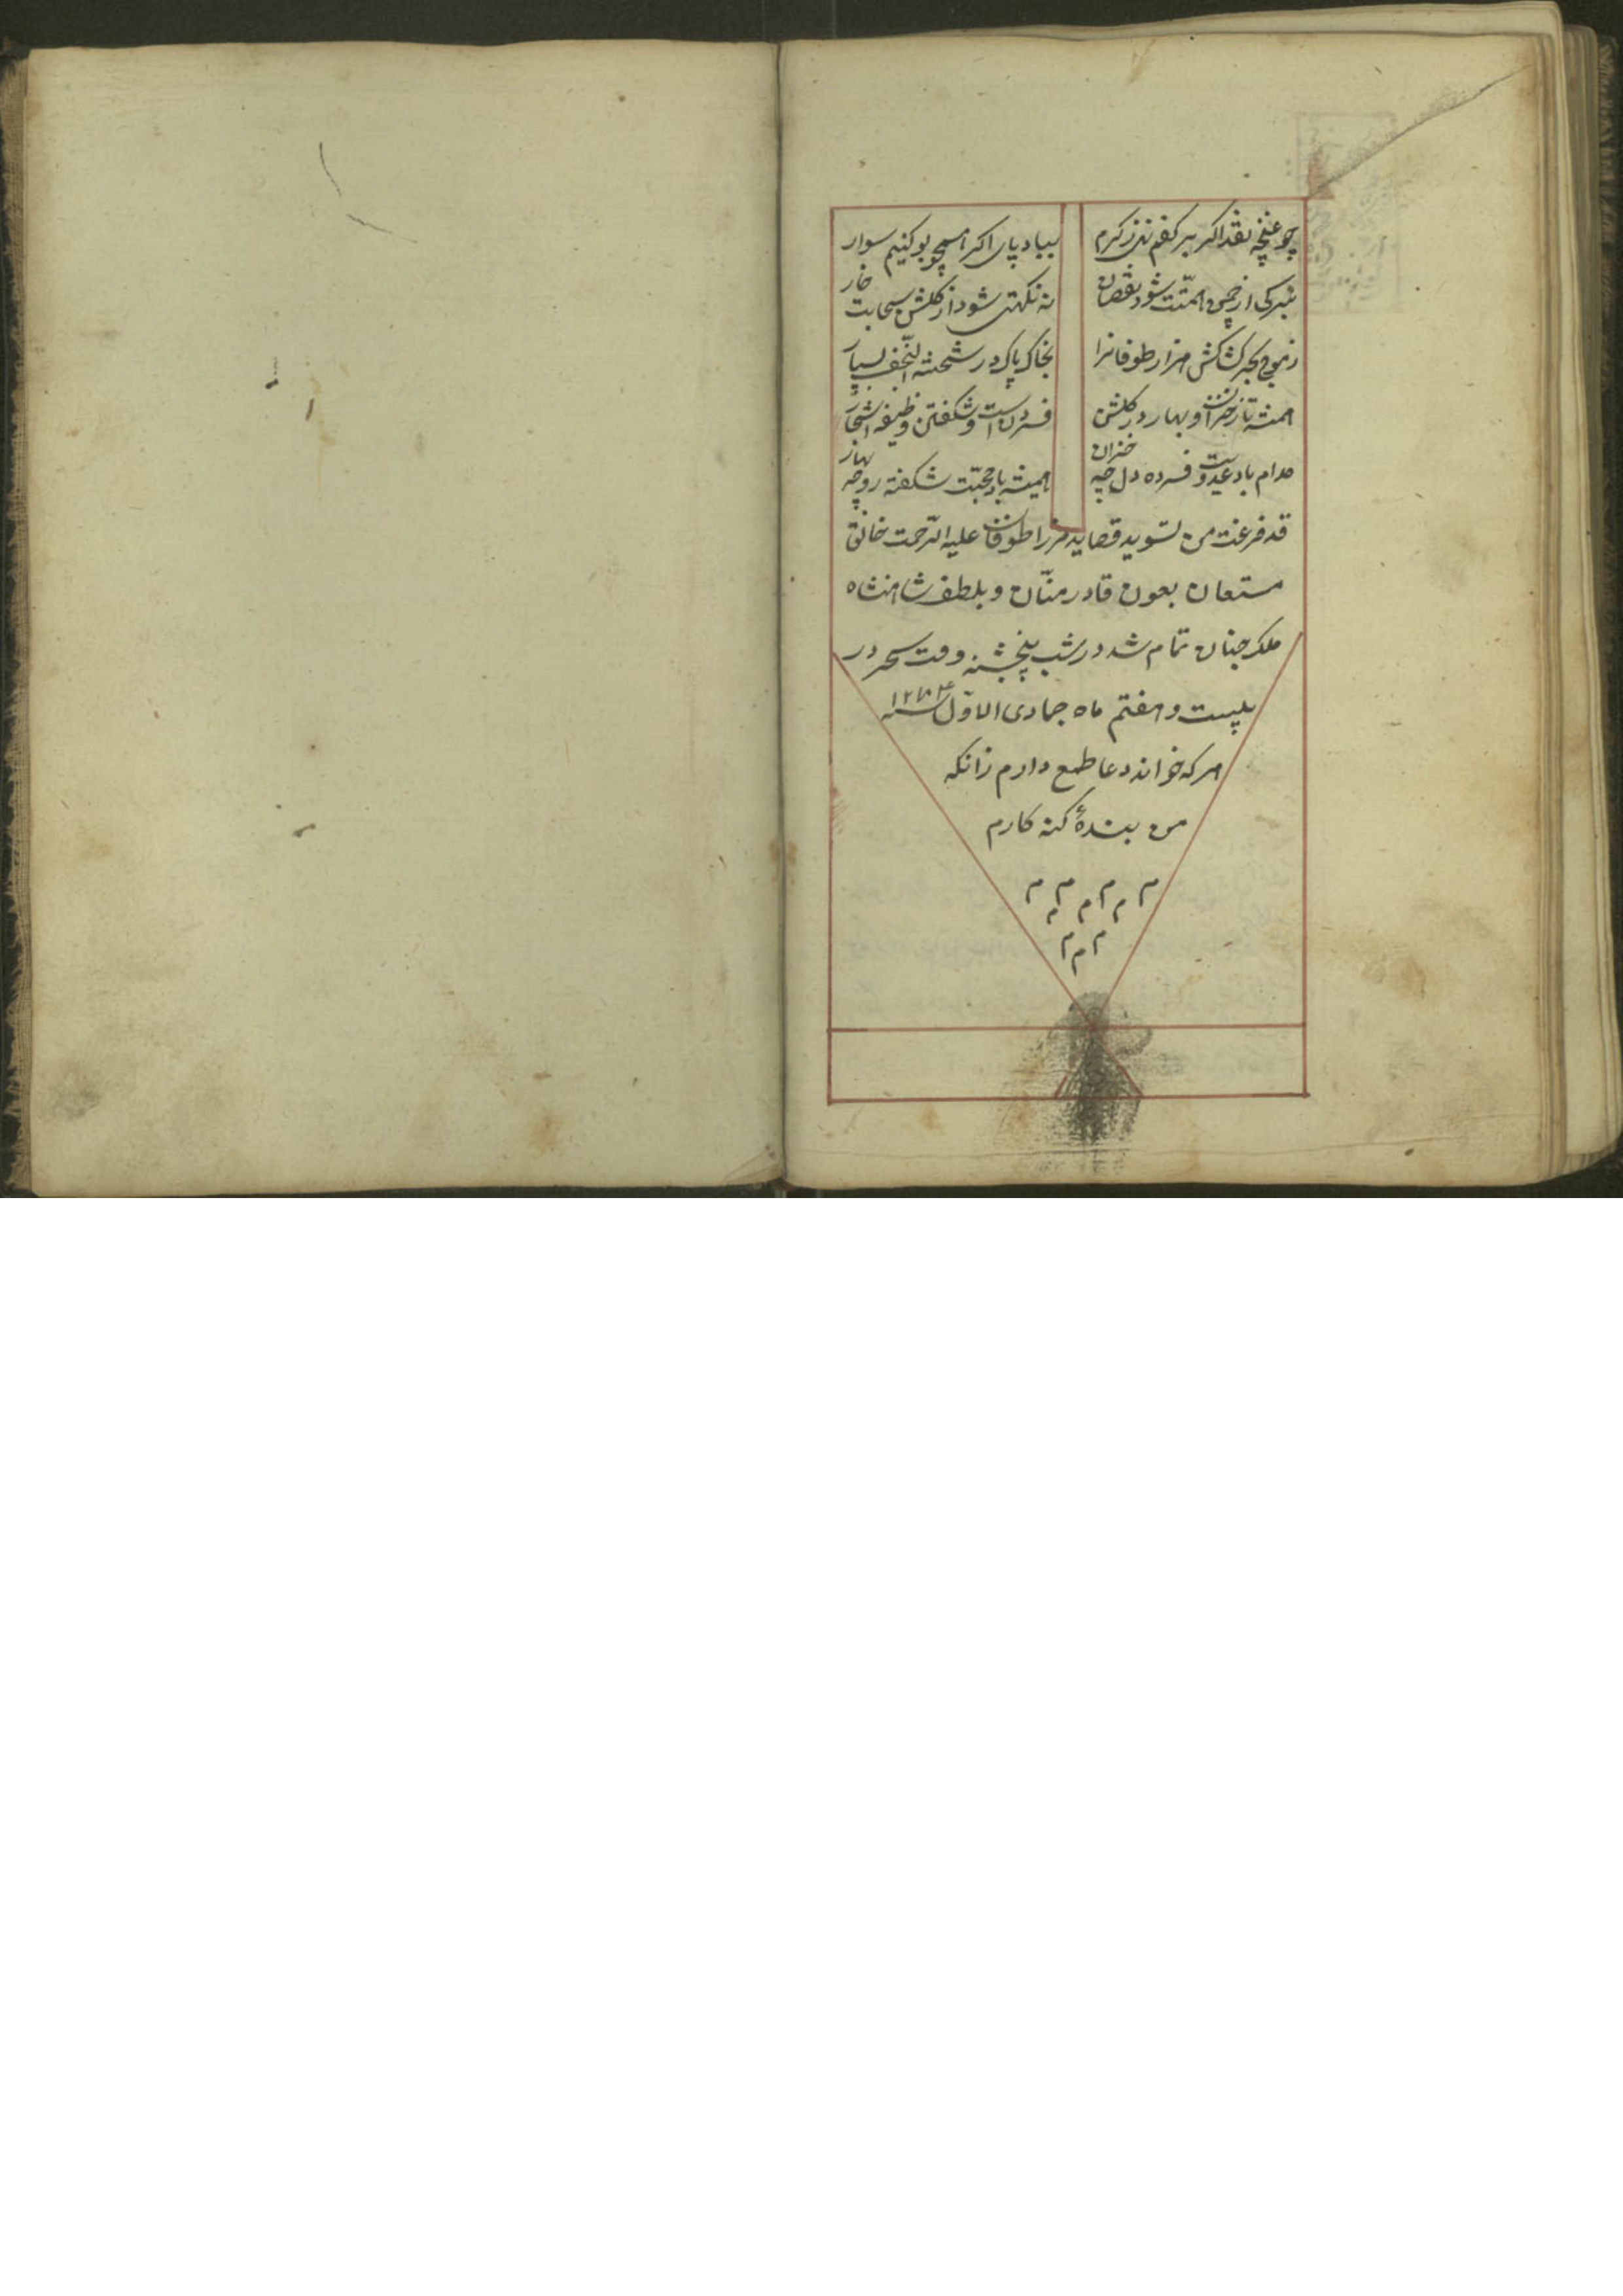 چو غنچه نقد اکر بر کفم نهی ز کرم
بباد پای اکر همچو بو کنیم سوار
نه برکی از چمن همتت شود نقصان
نه نکهتی شود از کلشن سحابت خار
ز موج بحر کشاکش هزار طوفانرا
بخاک پاک در شحنة النجف بسپار
همیشه تا ز خزان و بهار در کلشن
فسردن است و شکفتن وظیفه اشجار
مدام باد عدوت فسرده دل چه خزان
همیشه باد محبت شکفته رو چه بهار
قد فرغت من تسوید قصاید میرزا طوفان علیه الرحمت خالق
مستعان بعون قادر منّان و بلطف شاهنشاه
ملک جنان تمام شد در شب پنجشنبه وقت سحر در
بیست و هفتم ماه جمادی الاوّل سنه
هر که خواند دعا طمع دارم زانکه
من بندهٔ کنه کارم
م م م م م م م م
م م م